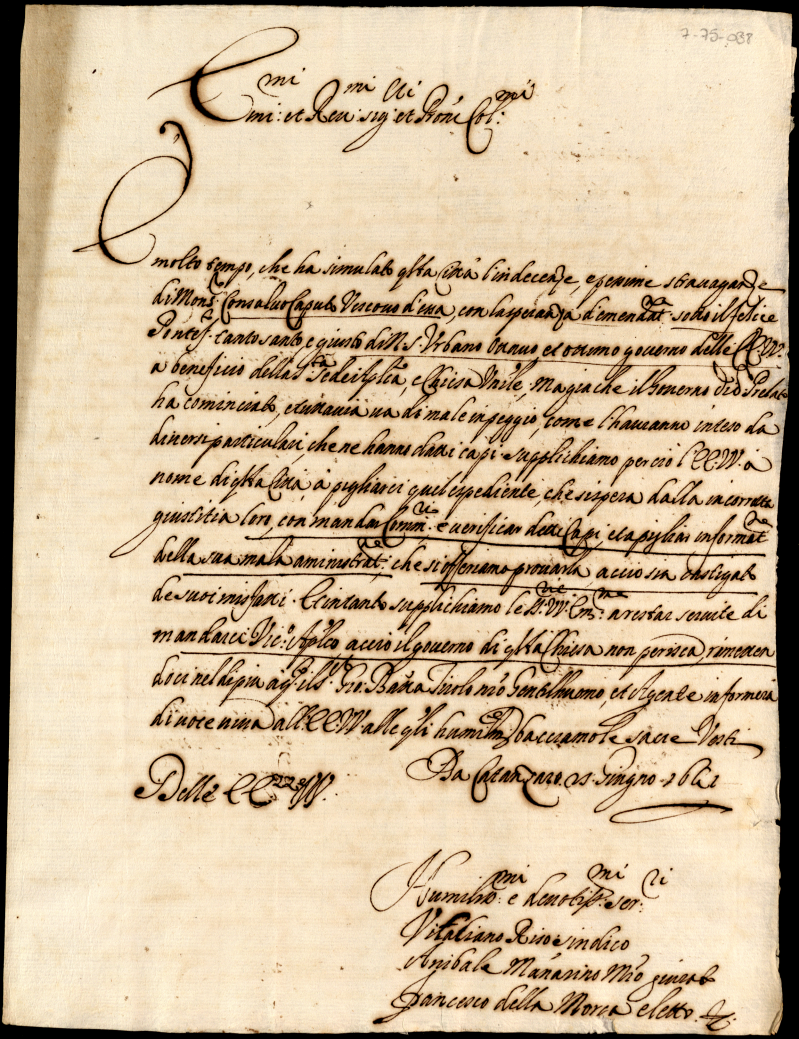 7-75-038
Emi: et Reu: sig: et Proni Col:
mi mi ri mi
E molto tempo, che ha simulato qsta Città l'indecenze, e pessime stravaganze
di Mons:r Consalvo Caputo Vescovo d'essa, con la speranza d'emendat:ne sotto il felice
Pontef:to tanto santo e giusto di N.S. Urbano ottavo, et ottimo governo delle EE.VV.
a beneficio della S:ta Sede Aplica, e Chiesa Unile, Ma gia che il Governo di d:o Prelato
ha cominciato, e tuttavia va di male in peggio, come l'havranno inteso da
diversi particulari, che ne hanno dati i capi. supplichiamo perciò l'EE.VV. à
nome di qsta Città à pigliarci quel espediente, che si spera dalla incorrotta
giustitia loro, con mandar Comm:rio e verificar detti Capi, et a pigliar informat:ne
della sua mala aministrat:ne che si offeriano provarla accio sia castigato
de suoi misfatti. Et in tanto supplichiamo le SS.VV. Em:me a restar servite di
mandarci Vic:o Aplco accio il governo di qsta Chiesa non perisca, rimetten
doci nel di piu à quel Gio: Batta nro Gentilhuomo, et Agente informerà
di voce viva all'EE.VV. alle qli humilm:te bacciamo le sacre Vesti
Da Catanzaro 21. Giugno. 1631
Delle EE. VV.
Humiliss:mi e devotiss:mi ser:ri
Vitaliano Riso sindico
Anibale Mañarino Mro giurato
francesco della Morca eletto.